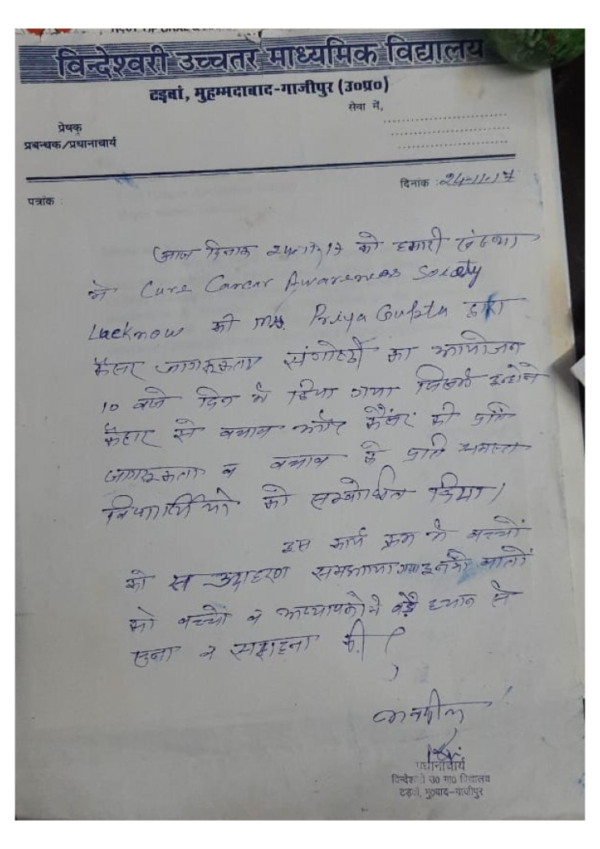 विन्देश्वरी उच्चतर माध्यमिक विद्यालय
टड़वां, मुहम्मदाबाद-गाजीपुर (उ०प्र०)
सेवा में,
प्रेषक
प्रबन्धक/प्रधानाचार्य
दिनांक 24-11-17
पत्रांक
आज दिनांक 24-11-17 को हमारी संस्था
में Cure Cancer Awareness Society
Lucknow की Mrs. Priya Gupta द्वारा
कैंसर जागरूकता संगोष्ठी का आयोजन
10 बजे दिन में किया गया जिसमें इन्होंने
कैंसर से बचाव और कैंसर की प्रति
जागरूकता व बचाव के प्रति समस्त
विद्यार्थियों को सम्बोधित किया।
इस कार्य क्रम में बच्चों
को स उदाहरण समझाया गया इनकी बातों
को बच्चों व अध्यापकों ने बड़े ध्यान से
सुना व सराहना की।
प्रधानाचार्य
विन्देश्वरी उ० मा० विद्यालय
टड़वां, मु०बाद-गाजीपुर